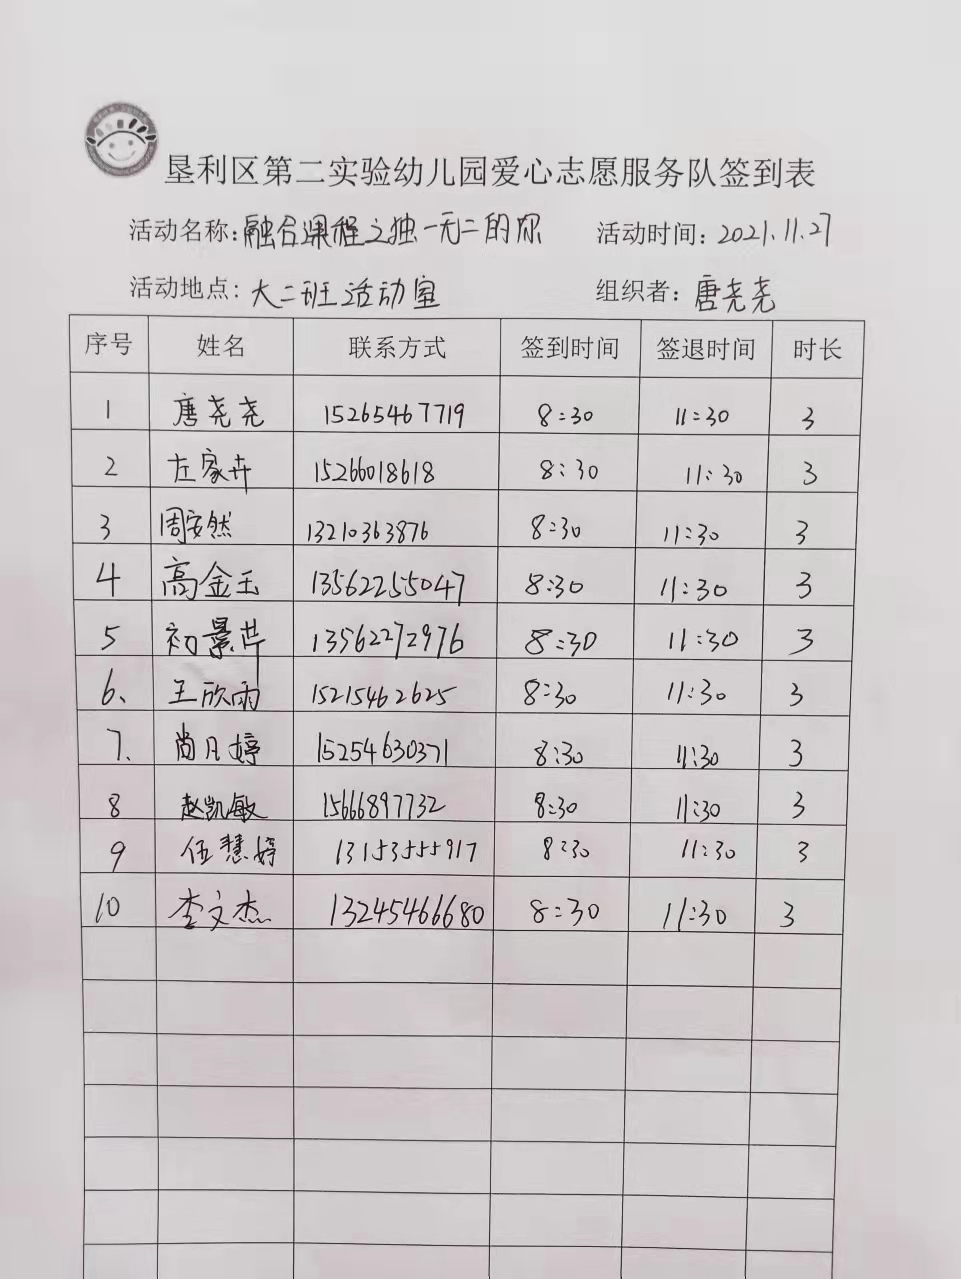 垦利区第二实验幼儿园爱心志愿服务队签到表
活动名称:融合课程之独一无二的你 活动时间:2021.11.27
活动地点:大二班活动室 组织者:唐尧尧
序号 姓名 联系方式 签到时间 签退时间 时长
1 唐尧尧 15265467719 8:30 11:30 3
2 左家卉 15266018618 8:30 11:30 3
3 周安然 13210363876 8:30 11:30 3
4 高金玉 13562255047 8:30 11:30 3
5 初景芹 13562272976 8:30 11:30 3
6、 王欣雨 15215462625 8:30 11:30 3
7、 尚凡婷 15254630371 8:30 11:30 3
8 赵凯敏 15666897732 8:30 11:30 3
9 伍慧婷 13153555917 8:30 11:30 3
10 李文杰 13245466680 8:30 11:30 3